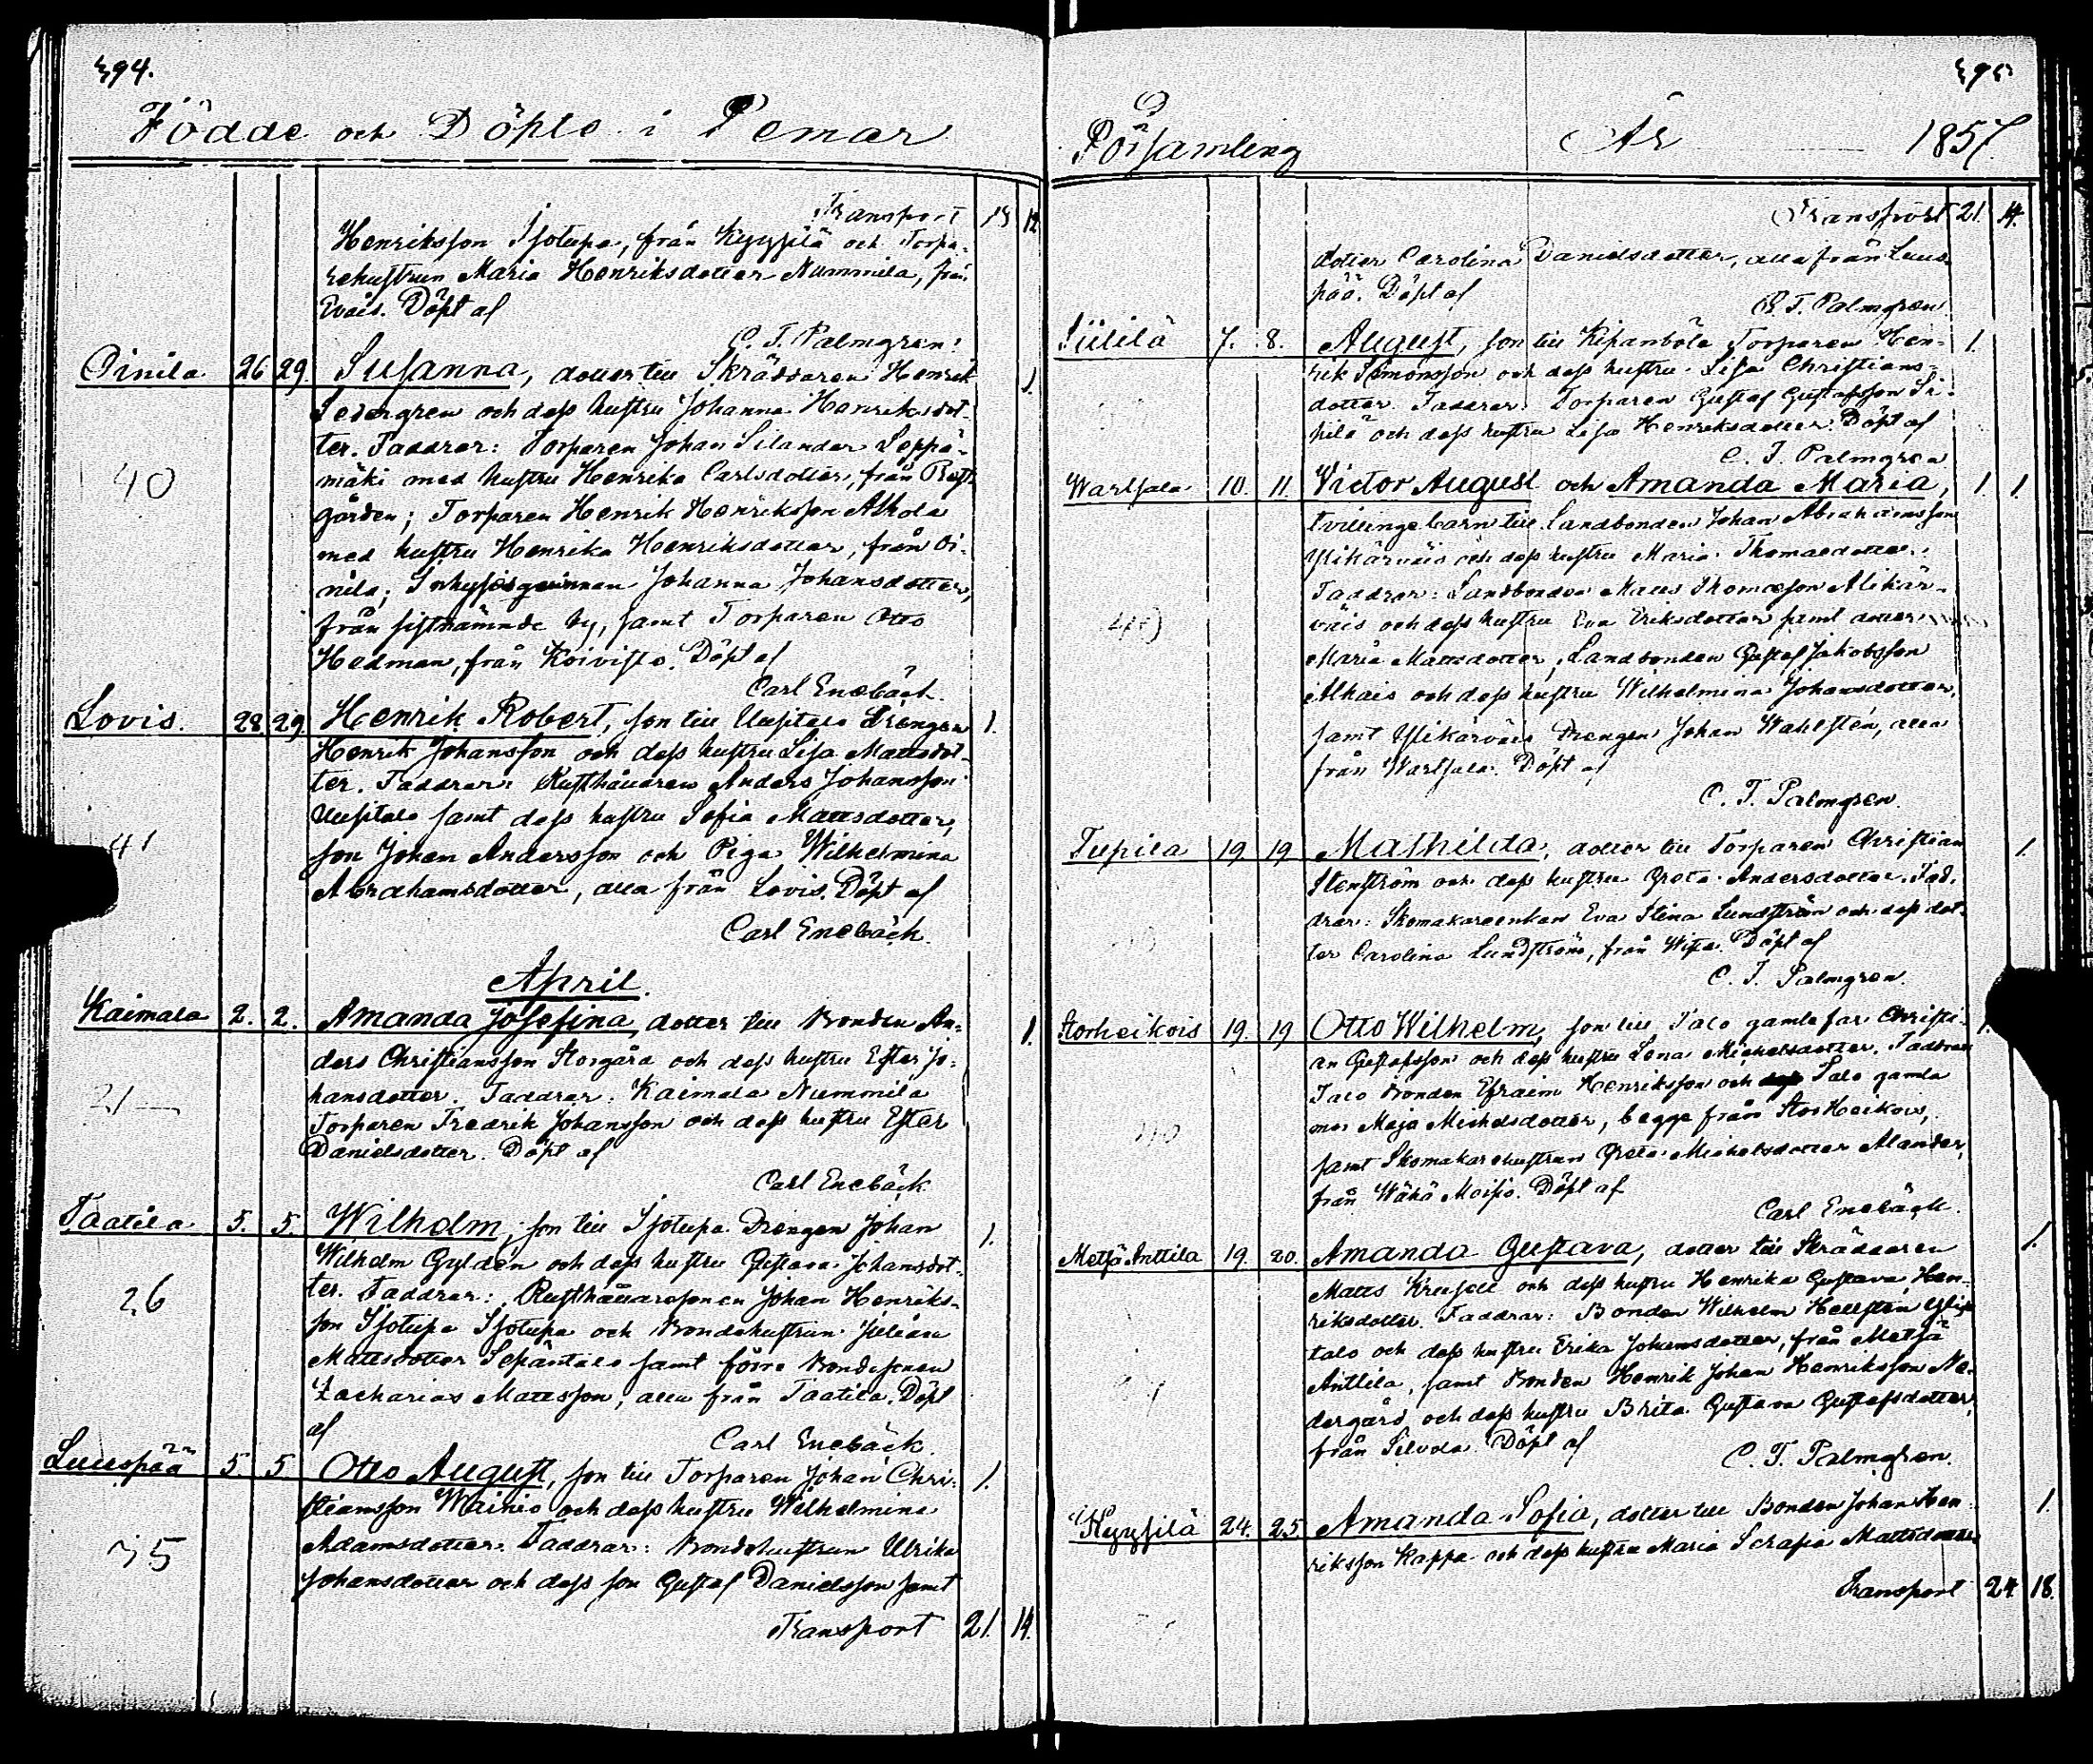 494.
Födde och Döpte i Pemar
Transport 19 12
Henriksson Isotupa, från Kyysilä och Torpa-
rehustrun Maria Henriksdotter Nummila, från
Evais. Döpt af
C. T. Palmgren.
Oinila 26 29. Susanna, dotter till Skräddaren Henrik 1.
Sedergren och dess hustru Johanna Henriksdot-
ter. Faddrar: Torparen Johan Silander Seppä-
mäki med hustru Henrika Carlsdotter, från Prest-
40
gården; Torparen Henrik Henriksson Alhola
med hustru Henrika Henriksdotter, från Oi-
nila; Inhysesqvinnan Johanna Johansdotter,
från sistnämnde by, samt Torparen Otto
Hedman, från Koivisto. Döpt af
Carl Enebäck.
Lovis. 28 29. Henrik Robert, son till Uusitalo Drängen 1.
Henrik Johansson och dess hustru Lisa Mattsdot-
ter. Faddrar: Rusthållaren Anders Johansson
Uusitalo samt dess hustru Sofia Mattsdotter,
41
son Johan Andersson och Piga Wilhelmina
Abrahamsdotter, alla från Lovis. Döpt af
Carl Enebäck.
April.
Kaimala 2. 2. Amanda Josefina, dotter till Bonden An- 1.
ders Christiansson Storgård och dess hustru Ester Jo-
hansdotter. Faddrar: Kaimala Nummila
21
Torparen Fredrik Johansson och dess hustru Ester
Danielsdotter. Döpt af
Carl Enebäck.
Taatila 5. 5. Wilhelm, son till Isotupa Drengen Johan 1.
Wilhelm Gyldén och dess hustru Gustava Johansdot-
ter. Faddrar: Rusthållaresonen Johan Henriks-
26
son Isotupa Isotupa och Bondehustrun Juliana
Mattsdotter Sepäntalo samt förre Bondesonen
Zacharias Mattsson, alla från Taatila. Döpt
af
Carl Enebäck.
Luuspää 5. 5 Otto August, son till Torparen Johan Chri- 1.
stiansson Wainio och dess hustru Wilhelmina
Adamsdotter. Faddrar: Bondehustrun Ulrika
35
Johansdotter och dess son Gustaf Danielsson samt
Transport 21. 14.
495
Församling År 1857.
Transport 21. 14.
dotter Carolina Danielsdotter, alla från Luus-
pää. Döpt af
C. T. Palmgren
Siililä 7. 8. August, son till Kipanböle Torparen Hen- 1.
rik Simonsson och dess hustru Lisa Christians-
dotter. Faddrar: Torparen Gustaf Gustafsson Si-
pilä och dess hustru Lisa Henriksdotter. Döpt af
C. T. Palmgren
Wartsala 10. 11. Victor August och Amanda Maria, 1. 1.
tvillinge barn till Landbonden Johan Abrahamsson
Ylikärväis och dess hustru Maria Thomasdotter.
Faddrar: Landbonden Matts Thomasson Alikär-
väis och dess hustru Eva Eriksdotter samt dotter
Maria Mattsdotter, Landbonden Gustaf Jakobsson
Alhais och dess hustru Wilhelmina Johansdotter,
samt Ylikärväis Drengen Johan Wahlstén, alla
från Wartsala. Döpt af
C. T. Palmgren.
Tupila 19. 19 Mathilda, dotter till Torparen Christian 1.
Stenström och dess hustru Greta Andersdotter. Fad-
drar: Skomakareenkan Eva Stina Lundström och dess dot-
ter Carolina Lundström, från Wista. Döpt af
C. T. Palmgren.
Storheikois 19. 19 Otto Wilhelm, son till Talo gamla far Christi- 1.
an Gustafsson och dess hustru Lena Michelsdotter. Faddrar:
Talo Bonden Efraim Henriksson och Talo gamla
mor Maja Michelsdotter, begge från Stor Heikois,
samt Skomakarehustrun Greta Michelsdotter Alander,
från Wähä Moisio. Döpt af
Carl Enebäck.
Metsä Anttila 19. 20. Amanda Gustava, dotter till Skräddaren 1.
Matts Krusell och dess hustru Henrika Gustava Hen-
riksdotter. Faddrar: Bonden Wilhelm Hellstén Ylis-
talo och dess hustru Erika Johansdotter, från Metsä
Anttila, samt Bonden Henrik Johan Henriksson Ne-
dergård och dess hustru Brita Gustava Gustafsdotter,
från Silvola. Döpt af
C. T. Palmgren.
Kyysilä 24. 25. Amanda Sofia, dotter till Bonden Johan Hen- 1.
riksson Kappa och dess hustru Maria Serafia Mattsdotter
Transport 24 18.